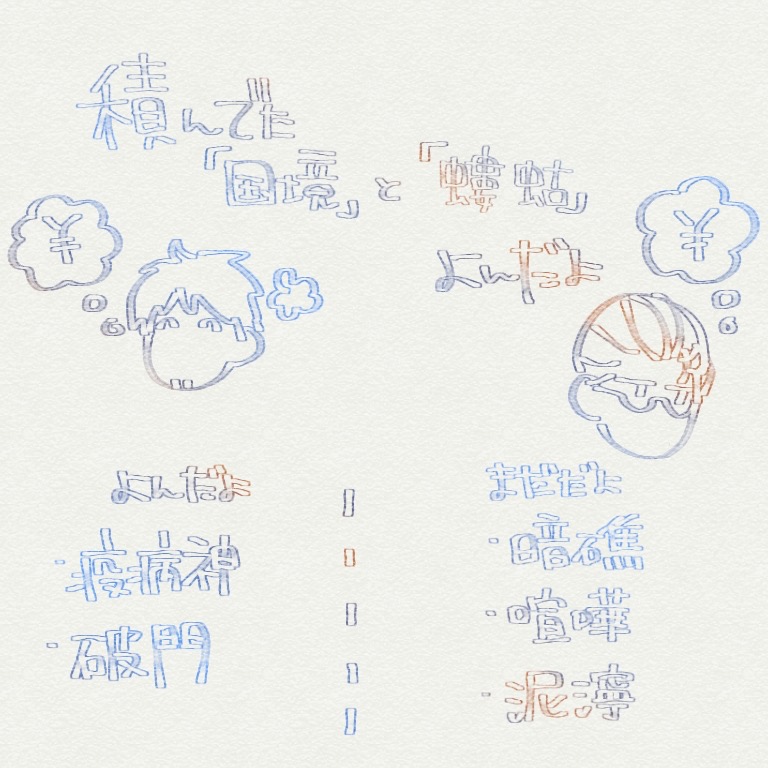 積んでた
「国境」と「螻蛄」
よんだよ
¥
¥
よんだよ
・疫病神
・破門
まだだよ
・暗礁
・喧嘩
・泥濘